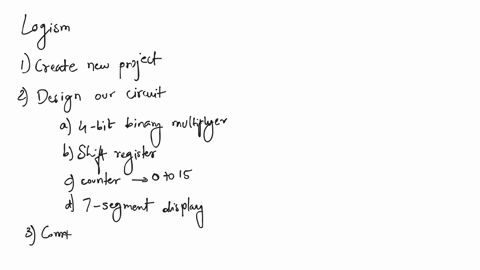 Logism
1) Create new project
2) Design our circuit
a) 4-bit binary multiplyer
b) Shift register
c) counter → 0 to 15
d) 7-segment display
3)